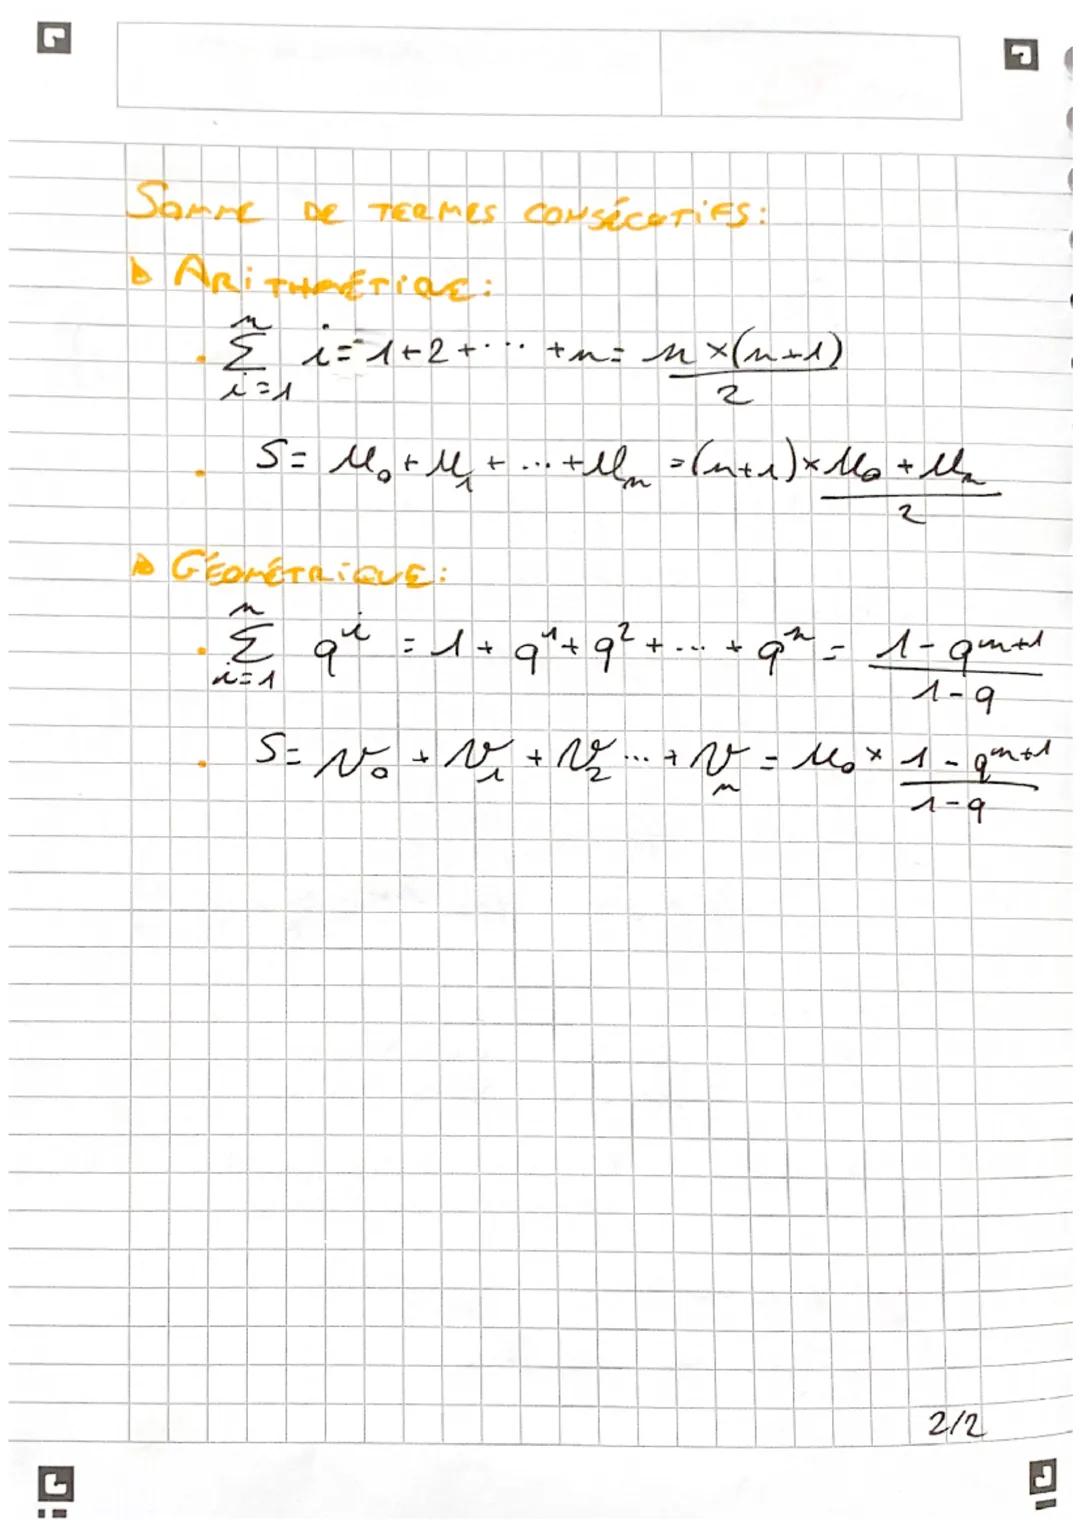 SOMME DE TERMES CONSÉCUTIFS:
ARITHMÉTIQUE:
n
. Σ i = 1+2+... +n = n×(n+1)
i=1 2
. S= u₀ + u₁ + ... + uₙ = (n+1)× u₀ + uₙ
2
GÉOMÉTRIQUE:
n
. Σ qⁱ = 1 + q¹ + q² + ... + qⁿ = 1-qⁿ⁺¹
i=1 1-q
. S= v₀ + v₁ + v₂ ... + vₙ = u₀ × 1-qⁿ⁺¹
1-q
2/2